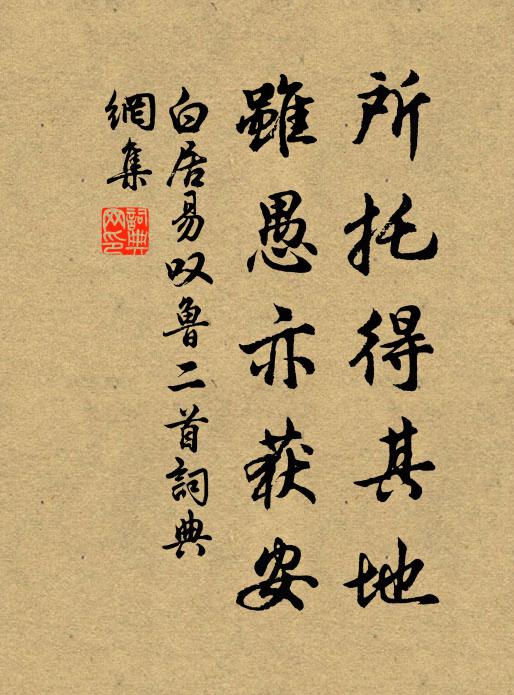 所托得其地
雖愚亦获安
白居易叹魯二首詞典
網集
詞典
网印